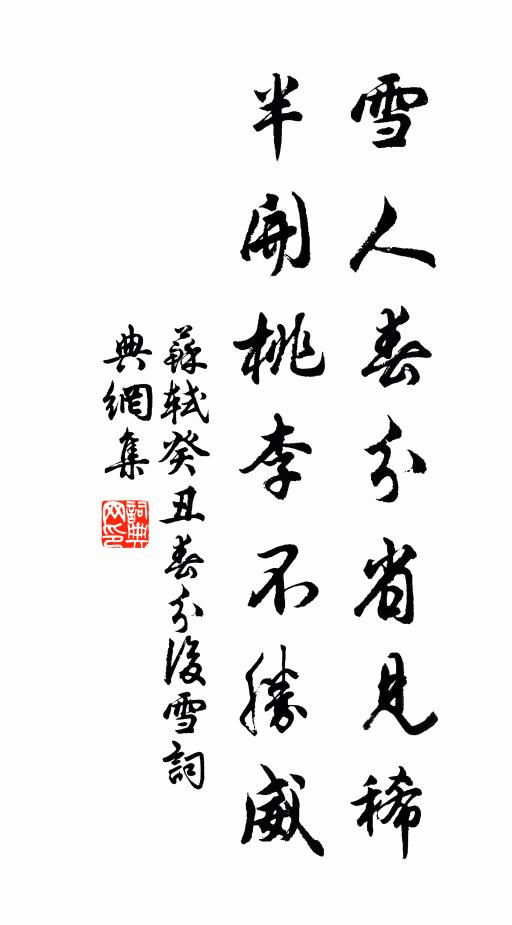 雪人春分省見稀
半開桃李不勝威
蘇軾癸丑春分後雪詞
典網集
詞典
网印